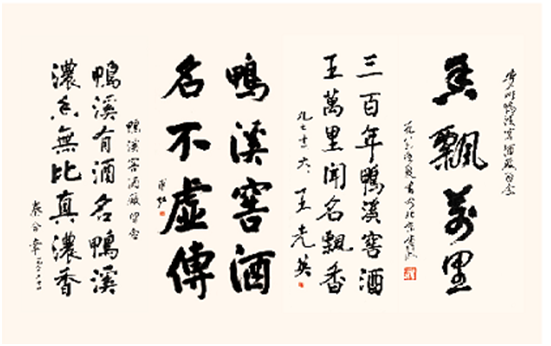 贵州鸭溪窖酒厂留念
香飄萬里
三百年鴨溪窖酒
五萬里聞名飄香
王光英
鴨溪窖酒
名不虛傳
鴨溪窖酒廠留念
鴨溪有酒名鴨溪
濃香無比真濃香
秦含章